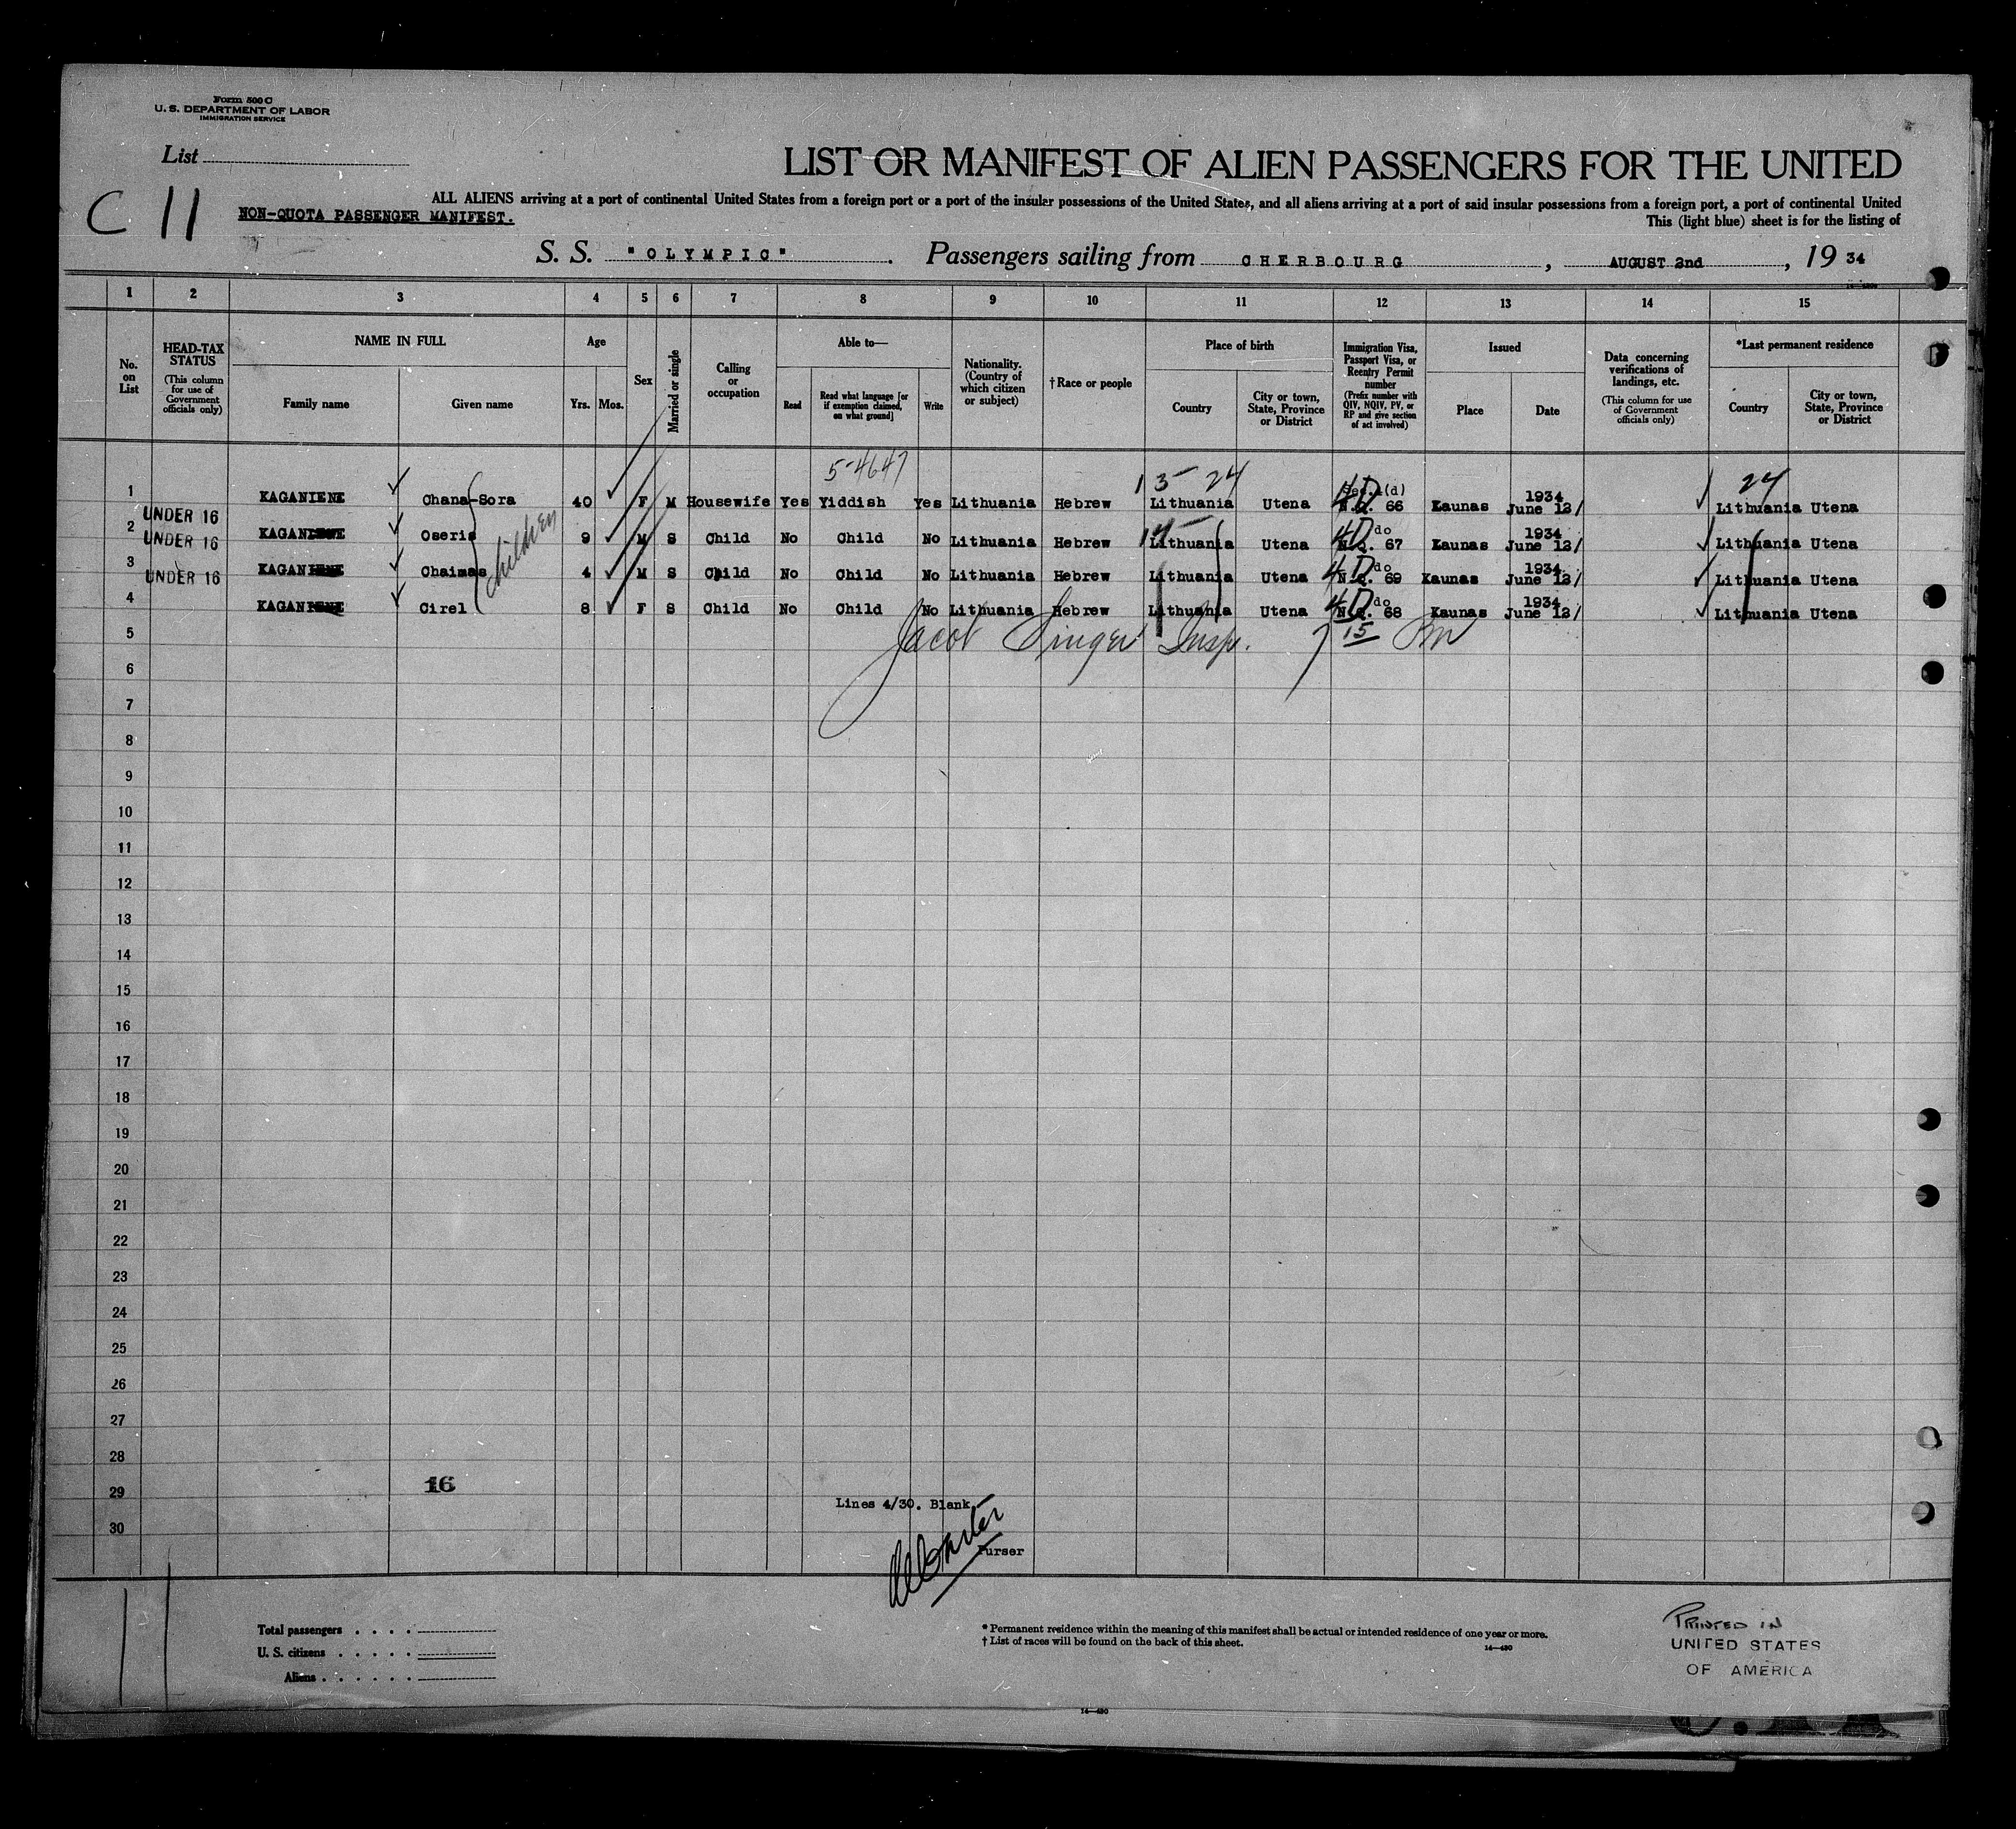 Form 500 C
U. S. DEPARTMENT OF LABOR
IMMIGRATION SERVICE
List
LIST OR MANIFEST OF ALIEN PASSENGERS FOR THE UNITED
C 11
ALL ALIENS arriving at a port of continental United States from a foreign port or a port of the insular possessions of the United States, and all aliens arriving at a port of said insular possessions from a foreign port, a port of continental United
NON-QUOTA PASSENGER MANIFEST.
This (light blue) sheet is for the listing of
S. S. "OLYMPIC". Passengers sailing from CHERBOURG, AUGUST 2nd, 19 34
1 2 3 4 5 6 7 8 9 10 11 12 13 14 15
No. on List
HEAD-TAX STATUS (This column for use of Government officials only)
NAME IN FULL Family name Given name
Age Yrs. Mos.
Sex
Married or single
Calling or occupation
Able to— Read Read what language [or if exemption claimed, on what ground] Write
Nationality. (Country of which citizen or subject)
†Race or people
Place of birth Country City or town, State, Province or District
Immigration Visa, Passport Visa, or Reentry Permit number (Prefix number with QIV, NQIV, PV, or RP and give section of act involved)
Issued Place Date
Data concerning verifications of landings, etc. (This column for use of Government officials only)
*Last permanent residence Country City or town, State, Province or District
5-4647 24 24
1 KAGANIENE Chana-Sora 40 F M Housewife Yes Yiddish Yes Lithuania Hebrew Lithuania Utena 4D 66 Kaunas 1934 June 12/ Lithuania Utena
UNDER 16
2 KAGANIENE Oseris 9 M S Child No Child No Lithuania Hebrew Lithuania Utena 4D do 67 Kaunas 1934 June 12/ Lithuania Utena
UNDER 16
3 KAGANIENE Chaimas 4 M S Child No Child No Lithuania Hebrew Lithuania Utena 4D do 69 Kaunas 1934 June 12/ Lithuania Utena
UNDER 16
4 KAGANIENE Cirel 8 F S Child No Child No Lithuania Hebrew Lithuania Utena 4D do 68 Kaunas 1934 June 12/ Lithuania Utena
children
5
Jacob Singer Insp. 7 15 PM
6
7
8
9
10
11
12
13
14
15
16
17
18
19
20
21
22
23
24
25
26
27
28
16
29
Lines 4/30. Blank.
30
Purser
Total passengers
U. S. citizens
Aliens
* Permanent residence within the meaning of this manifest shall be actual or intended residence of one year or more.
† List of races will be found on the back of this sheet.
14—430
PRINTED IN
UNITED STATES
OF AMERICA
14—430